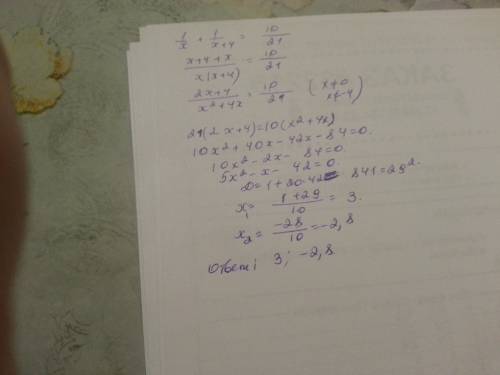 1/x + 1/x+4 = 10/21
x+4+x/x(x+4) = 10/21
2x+4/x²+4x = 10/21 (x≠0 x≠-4)
21(2x+4)=10(x²+4x)
10x²+40x-42x-84=0.
10x²-2x-84=0.
5x²-x-42=0.
D=1+20·42= 841=29².
x₁= 1+29/10 = 3.
x₂= -28/10 =-2,8
Ответ: 3; -2,8.